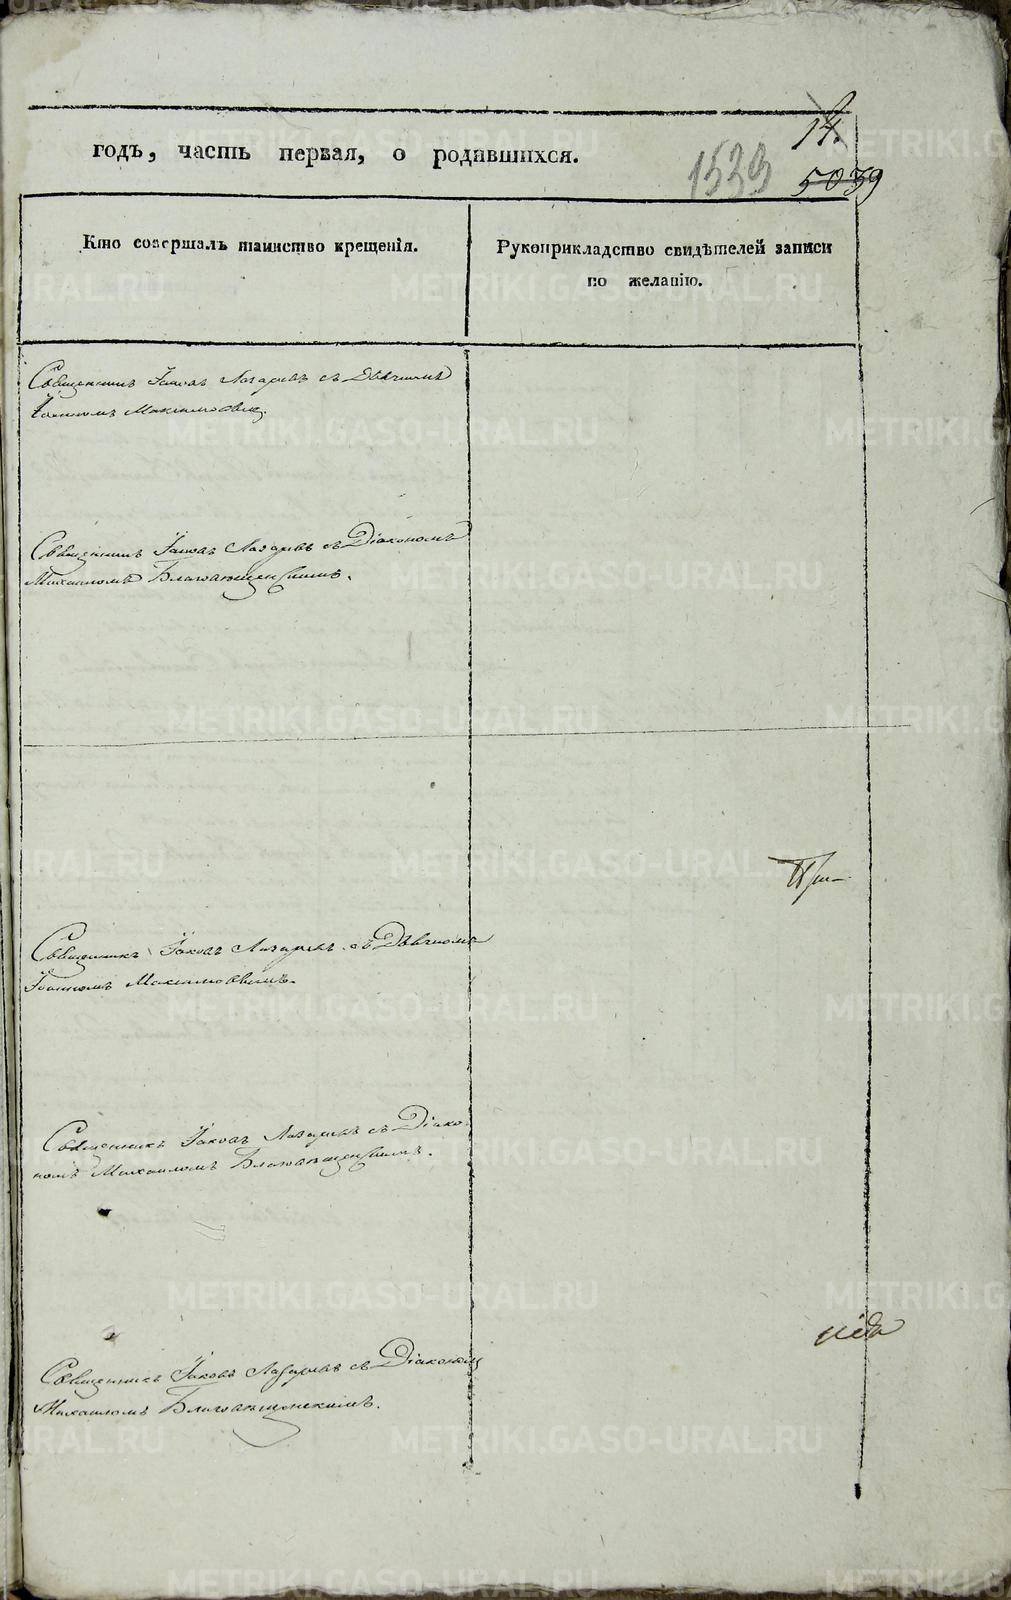 годъ, часть первая, о родившихся.
14.
1533
5039
Кто совершалъ таинство крещенія.
Рукоприкладство свидѣтелей записи
по желанію.
Священникъ Іаковъ Лазаревъ съ Дьячкомъ
Іоанномъ Максимовымъ.
Священникъ Іаковъ Лазаревъ съ Діакономъ
Михаиломъ Благовѣщенскимъ.
Священникъ Іаковъ Лазаревъ съ Дьячкомъ
Іоанномъ Максимовымъ.
Священникъ Іаковъ Лазаревъ съ Діако-
номъ Михаиломъ Благовѣщенскимъ.
Священникъ Іаковъ Лазаревъ съ Діакономъ
Михаиломъ Благовѣщенскимъ.
METRIKI.GASO-URAL.RU